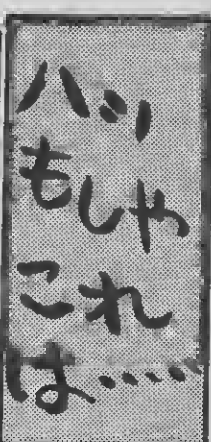 ハッ
もしや
これ
は……